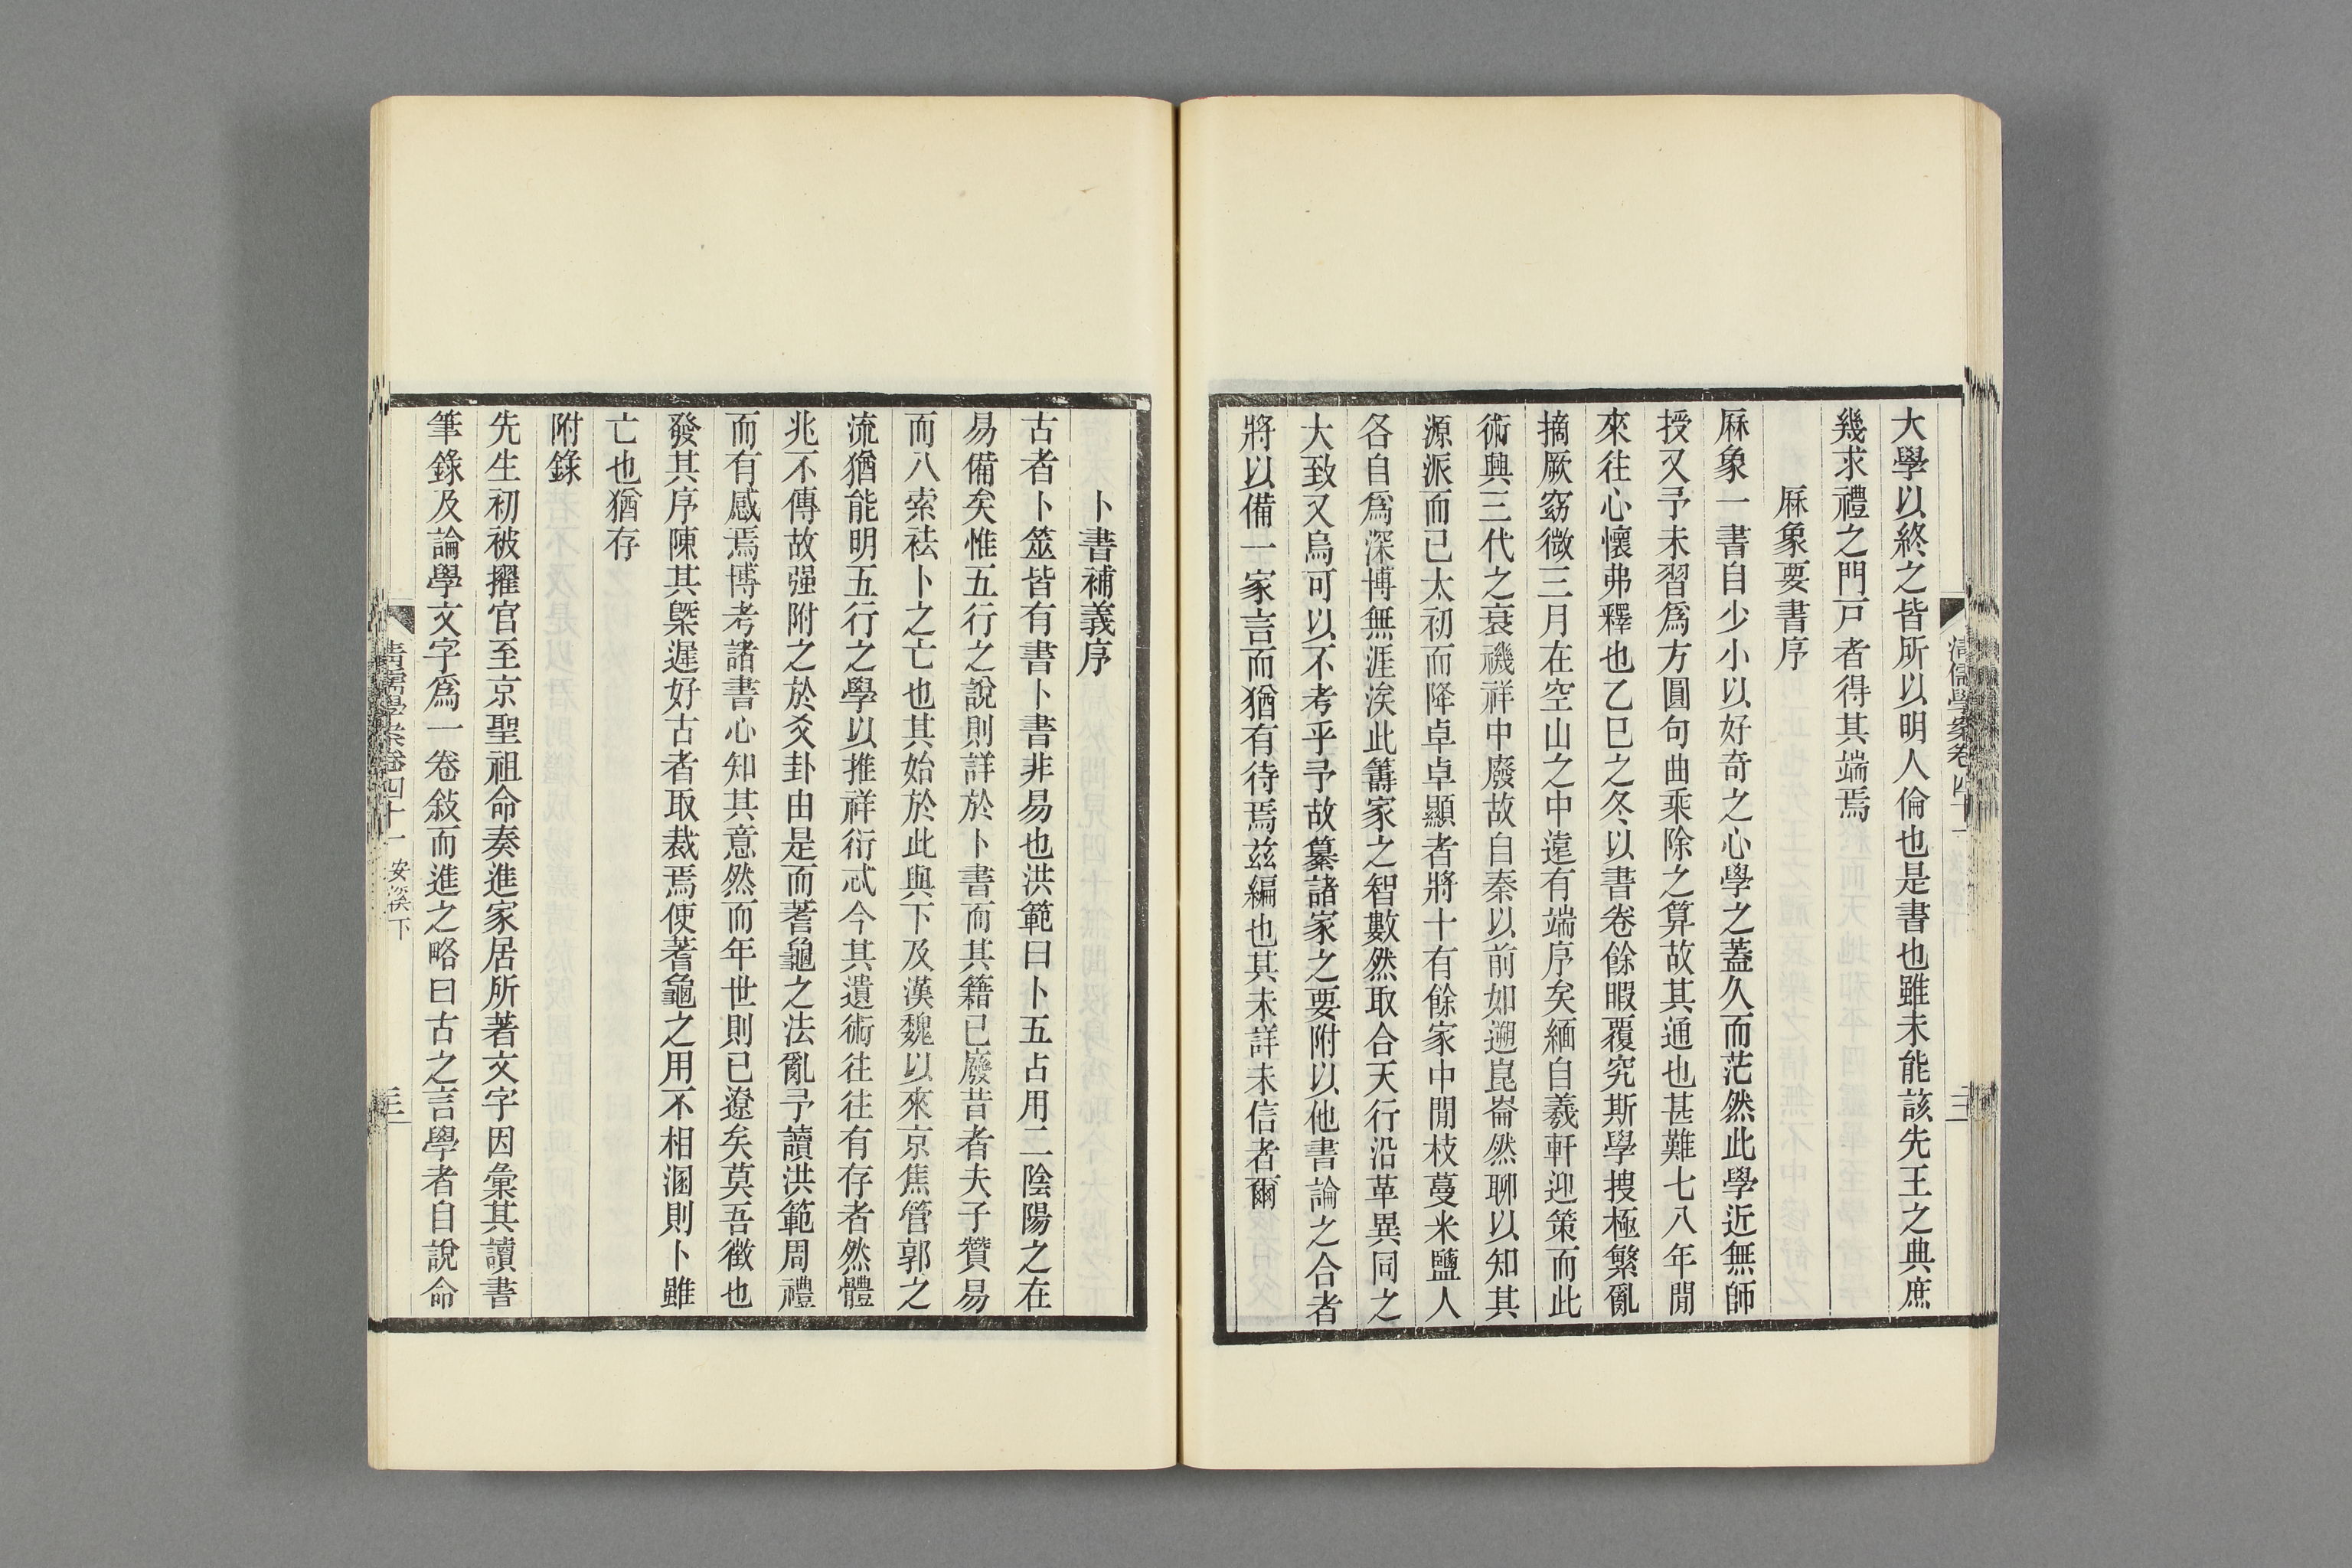 大學以終之皆所以明人倫也是書也雖未能該先王之典庶
幾求禮之門戸者得其端焉
厤象要書序
厤象一書自少小以好奇之心學之蓋久而茫然此學近無師
授又予未習爲方圓句曲乘除之算故其通也甚難七八年閒
來往心懷弗釋也乙巳之冬以書卷餘暇覆究斯學捜極繁亂
摘厥窈微三月在空山之中遠有端序矣緬自羲軒迎策而此
術興三代之衰禨祥中廢故自秦以前如遡崑崙然聊以知其
源派而已太初而降卓卓顯者將十有餘家中閒枝蔓米鹽人
各自爲深博無涯涘此籌家之智數然取合天行沿革異同之
大致又烏可以不考乎予故纂諸家之要附以他書論之合者
將以備一家言而猶有待焉茲編也其未詳未信者爾
卜書補義序
古者卜筮皆有書卜書非易也洪範曰卜五占用二陰陽之在
易備矣惟五行之說則詳於卜書而其籍已廢昔者夫子贊易
而八索祛卜之亡也其始於此與下及漢魏以來京焦管郭之
流猶能明五行之學以推祥衍忒今其遺術往往有存者然體
兆不傳故强附之於爻卦由是而蓍龜之法亂予讀洪範周禮
而有感焉博考諸書心知其意然而年世則已遼矣莫吾徵也
發其序陳其槩遲好古者取裁焉使蓍龜之用不相溷則卜雖
亡也猶存
附錄
先生初被擢官至京聖祖命奏進家居所著文字因彙其讀書
筆錄及論學文字爲一卷敍而進之略曰古之言學者自說命
清儒學案卷四十一 安溪下